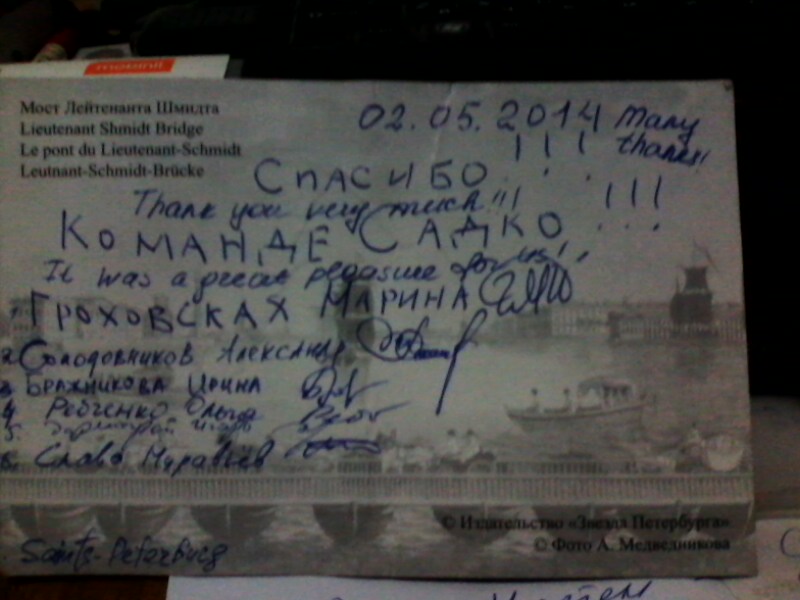 mobinil
Мост Лейтенанта Шмидта
Lieutenant Shmidt Bridge
Le pont du Lieutenant-Schmidt
Leutnant-Schmidt-Brücke
02.05.2014 many
thanks!!
СПАСИБО !!!
Thank you very much!!!
КОМАНДЕ САДКО !!!
It was a great pleasure for us!!
1. ГРОХОВСКАХ МАРИНА
2. Солодовников Александр
3. Бражникова Ирина
4. Ольга
5.
6. Слава Муравьёв
Saints-Peterburg
© Издательство «Звезда Петербурга»
© Фото А. Медведникова